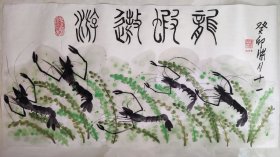 龍蝦遨游
癸卯月十一